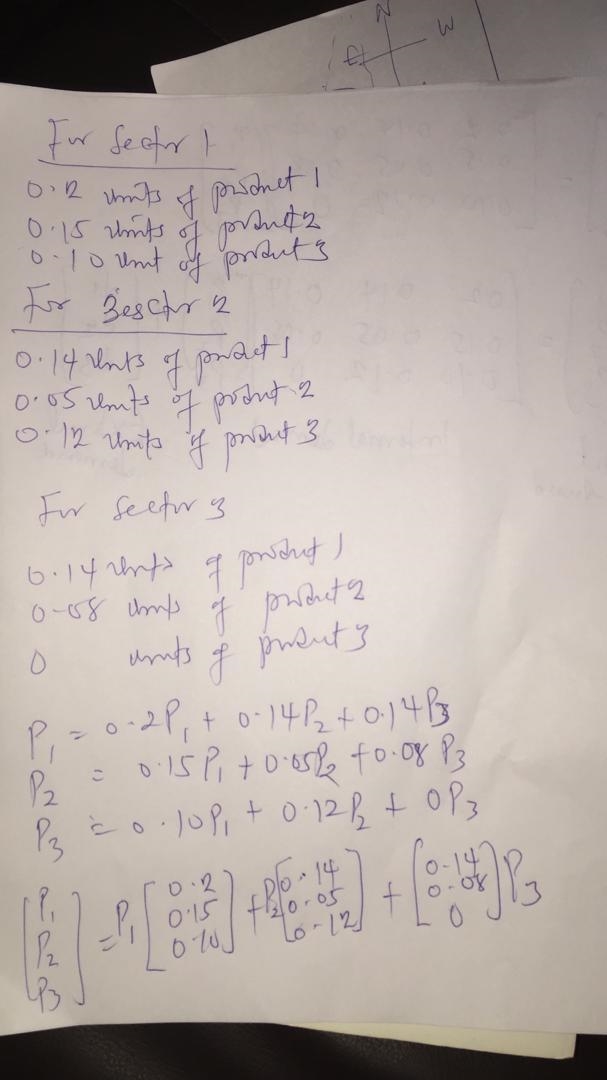 N
W
For Sector 1
0.2 units of product 1
0.15 units of product 2
0.10 unit of product 3
For Sector 2
0.14 units of product 1
0.05 units of product 2
0.12 units of product 3
For Sector 3
0.14 units of product 1
0.08 units of product 2
0 units of product 3
P₁ = 0.2P₁ + 0.14P₂ + 0.14P₃
P₂ = 0.15P₁ + 0.05P₂ + 0.08P₃
P₃ = 0.10P₁ + 0.12P₂ + 0P₃
[P₁ P₂ P₃] = P₁ [0.2 0.15 0.10] + P₂ [0.14 0.05 0.12] + [0.14 0.08 0] P₃